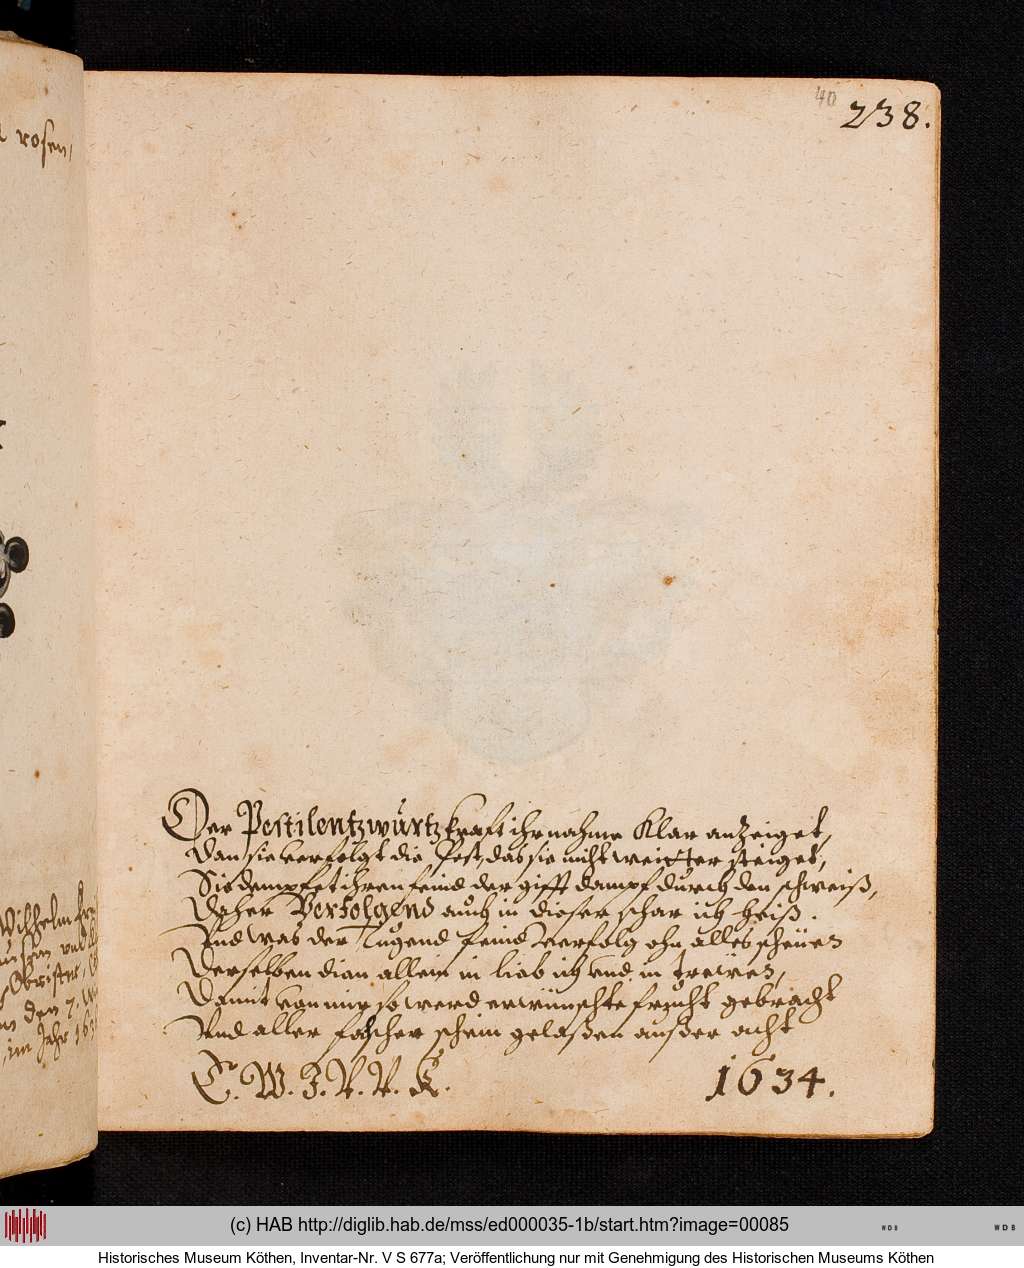 40
238.
rosen,
Der Pestilentzwürtz kraft ihr nahme klar anzeiget,
Dan sie verfolgt die Pest, das sie nicht weitter steiget,
Sie dempfet ihren feind der gifft dampf durch den schweiß,
Daher Verfolgend auch in dieser schar ich heiß.
Und was der Tugend feind verfolg ohn alles scheüen
Derselben dien allein in lieb ich und in trewen,
Damit von mir so werd erwünschte frucht gebracht
Und aller falscher schein gelaßen außer acht
C. W. F. V. V. K.
1634.
Wilhelm
und
Obrister,
den 7.
im Jahr 163
(c) HAB http://diglib.hab.de/mss/ed000035-1b/start.htm?image=00085
WDB
WDB
Historisches Museum Köthen, Inventar-Nr. V S 677a; Veröffentlichung nur mit Genehmigung des Historischen Museums Köthen